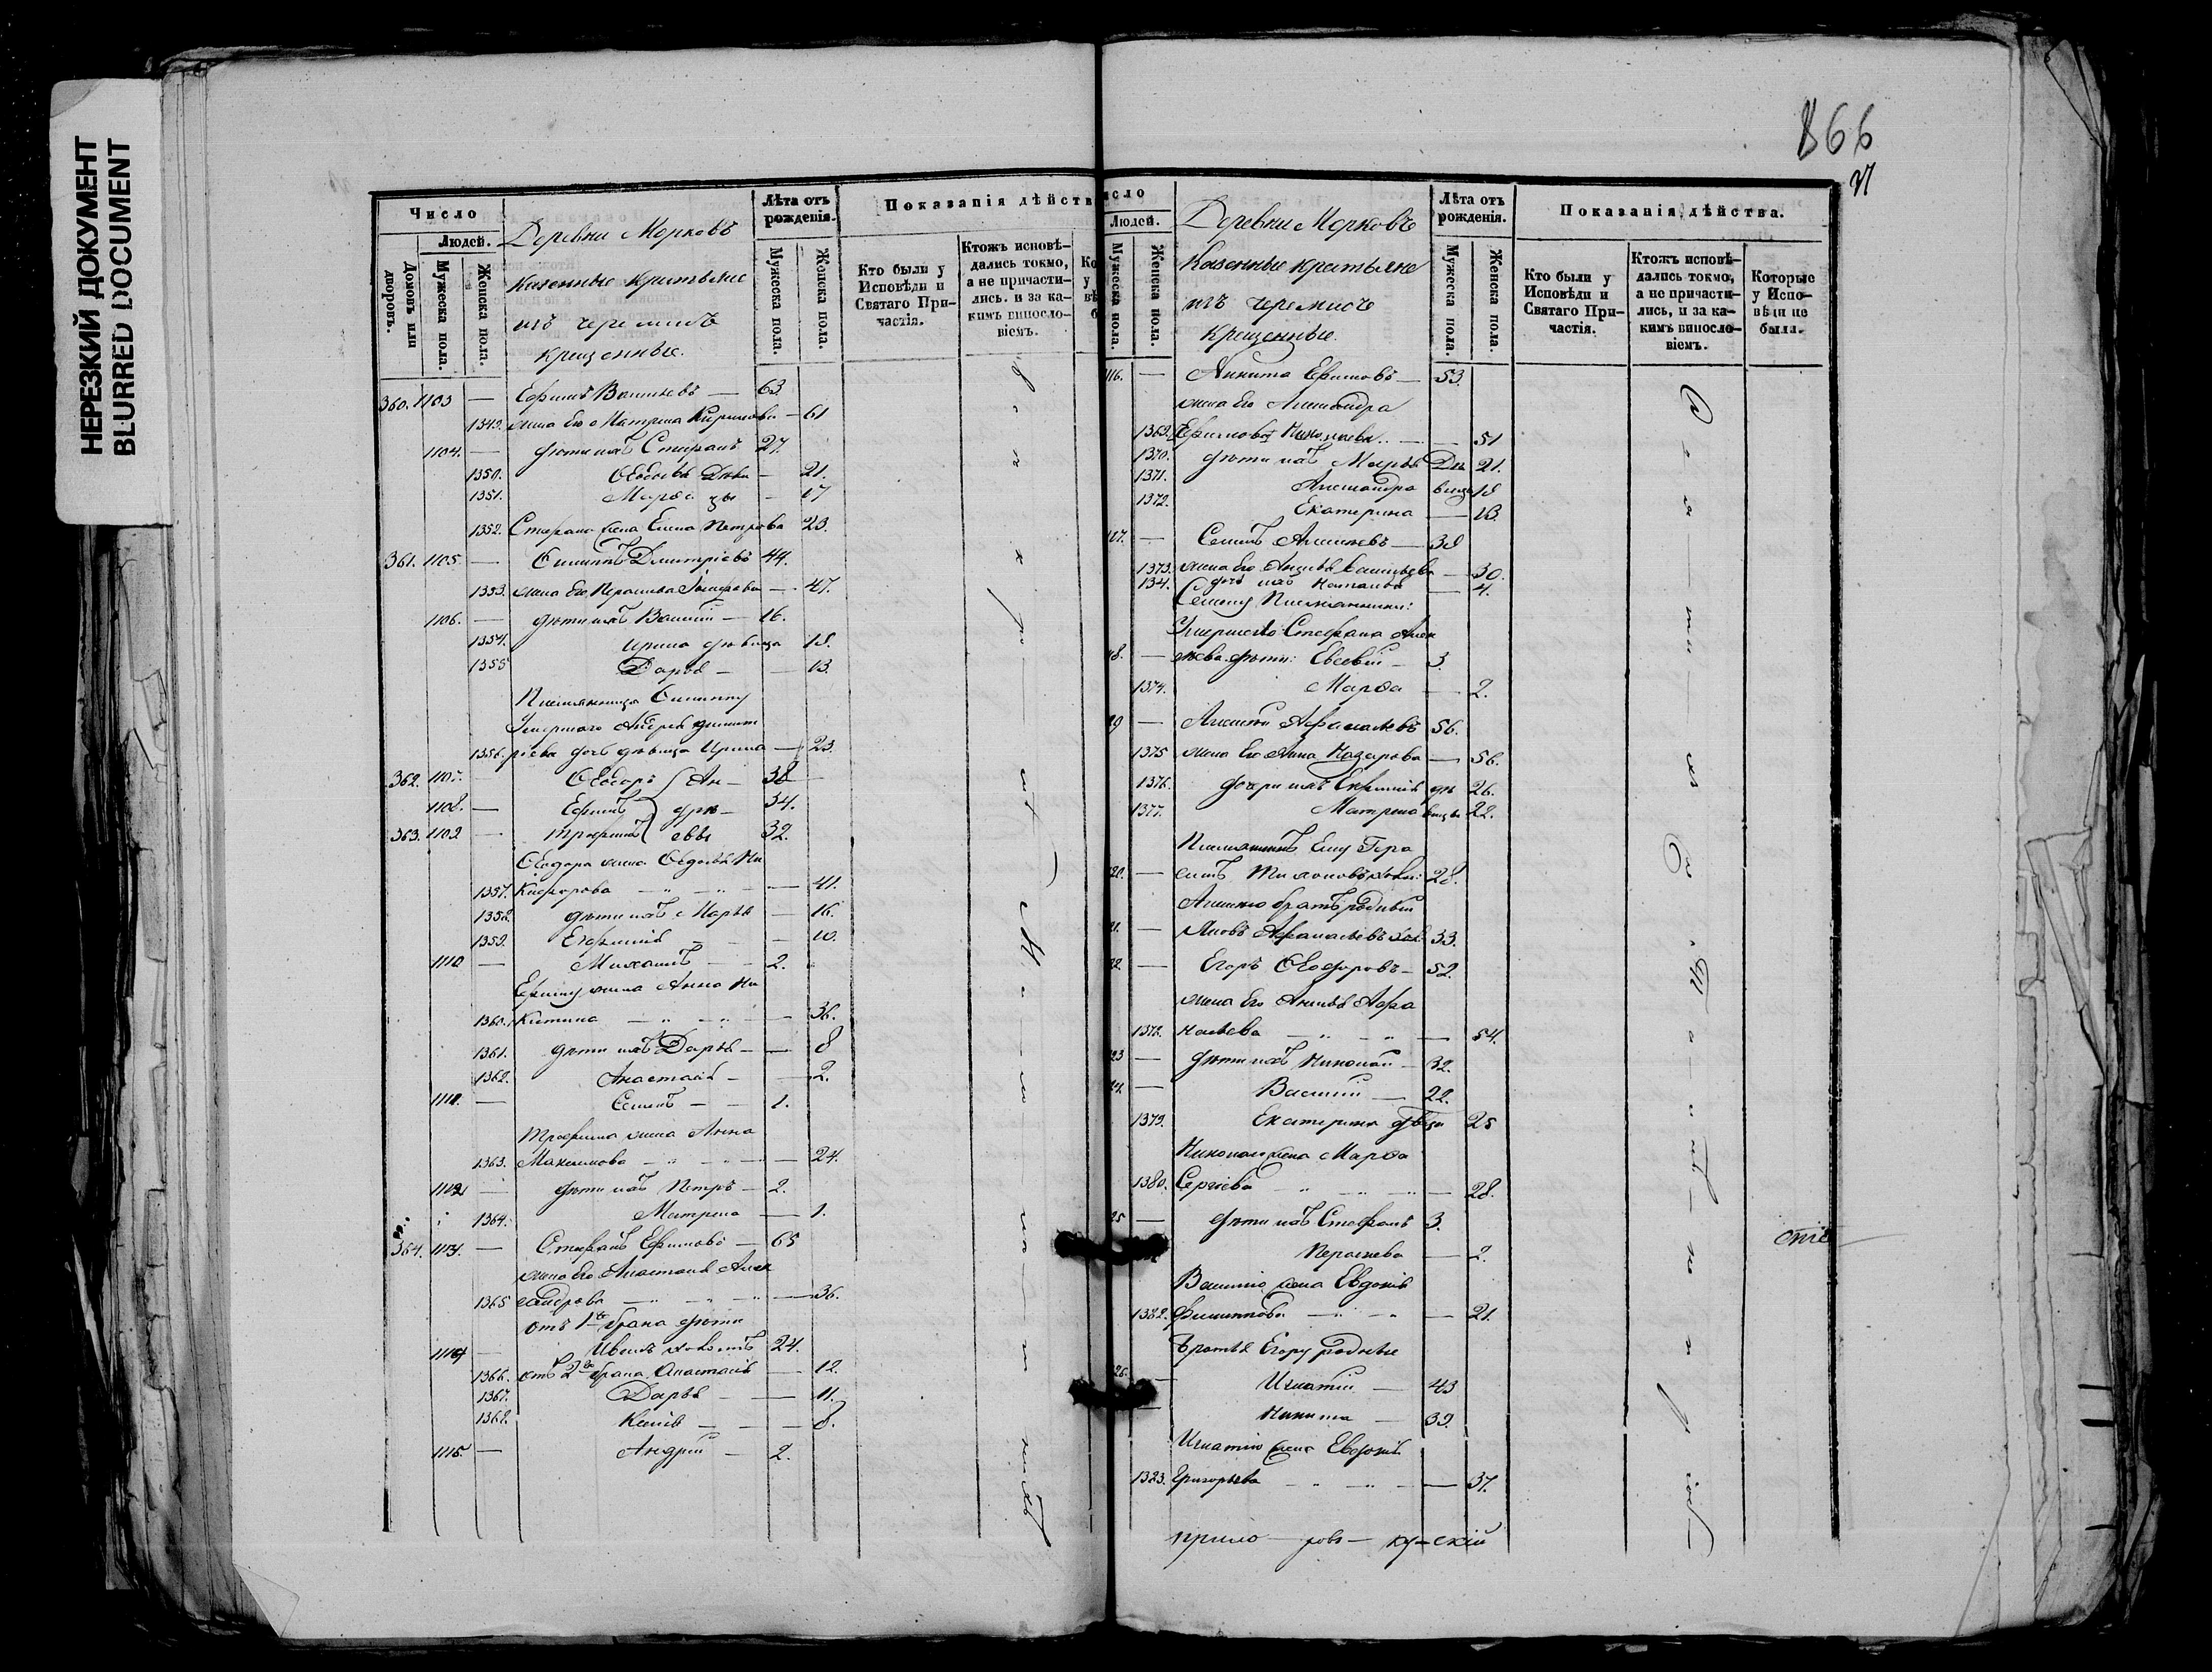 НЕРЕЗКИЙ ДОКУМЕНТ
BLURRED DOCUMENT
866
Число
Людей.
Домовъ или дворовъ.
Мужеска пола.
Женска пола.
Деревни Морковъ
казенные крестьяне
изъ черемисъ
крещенные.
Лѣта отъ рожденія.
Мужеска пола.
Женска пола.
Показанія дѣйств
Кто были у Исповѣди и Святаго Причастія.
Ктожъ исповѣдались токмо, а не причастились, и за какимъ винословіемъ.
360. 1103 — Ефимъ Васильевъ — 63.
1349. жена его Матрена Кирилова — 61
1104. — дѣти ихъ Стефанъ 27.
1350. Ѳедосья дѣви — 21.
1351. Марѳа цы — 17
1352. Стефана жена Елена Петрова 23.
361. 1105. — Филиппъ Дмитріевъ 44.
1353. жена его — 47.
1106. — дѣти ихъ Василій — 16.
1354. Ирина дѣвица 18.
1355 Дарья — 13.
Племянница Филиппу
Умершаго Андрея Димит
1356. ріева дочь дѣвица Ирина — 23.
362. 1107. — Ѳеодоръ Ан — 38
1108. — Ефимъ дре — 34.
363. 1109 — Трофимъ евы 32.
Ѳеодора жена Ѳедосья Ни
1357. кифорова — 41.
1358. дѣти ихъ Марья — 16.
1359. Евфимія — 10.
1110 — Михаилъ — 2.
Ефиму жена Анна Ни
1360. китина — 36.
1361. дѣти ихъ Дарья — 8
1362. Анастасія — 2.
1111. — Семенъ — 1.
Трофима жена Анна
1363. Максимова — 24.
1112 — дѣти ихъ Петръ — 2.
1364. Матрена — 1.
364. 1113. — Стефанъ Ефимовъ — 65
жена его Анастасія Алек
1365 сандрова — 36.
отъ 1го брака дѣти
1114 — Иванъ холостъ 24.
1366. отъ 2го брака Анастасія — 12.
1367. Дарья — 11.
1368. — 8.
1115. — Андрей — 2.
сло
Людей.
Мужеска пола.
Женска пола.
Деревни Морковъ
казенные крестьяне
изъ черемисъ
крещенные.
Лѣта отъ рожденія.
Мужеска пола.
Женска пола.
Показанія дѣйства.
Кто были у Исповѣди и Святаго Причастія.
Ктожъ исповѣдались токмо, а не причастились, и за какимъ винословіемъ.
Которые у Исповѣди не были.
116. — Никита Ефимовъ — 53.
жена его Александра
1369. Николаева — 51
1370. дѣти ихъ Марья Дѣ 21.
1371. Александра вицы 18
1372. Екатерина — 13.
117. — Семенъ Алексѣевъ — 38
1373. жена его Васильева — 30.
134. дочь ихъ Наталья — 4.
Семену Племянники:
Умершаго Стефана Алек
18. — сѣева дѣти: Евсевій — 3.
1374. Марѳа — 2.
19 — Алексѣй Аѳанасьевъ 56.
1375 жена его Анна Назарова — 56.
1376. дочери ихъ Евфимія дѣ 26.
1377. Матрена вицы 22.
Племянникъ Ему Гера
20. — симъ Тихоновъ 28.
Алексѣю братъ родный
21. — Яковъ Аѳанасьевъ 33.
22. — Егоръ Ѳеодоровъ — 52.
жена его Аѳа
1378. насьева — 54.
23 — дѣти ихъ Николай — 32.
24. — Василій — 22.
1379. Екатерина двца 25
Николая жена Марѳа
1380. Сергѣева — 28.
25 — дѣти ихъ Стефанъ 3.
— 2.
Василію жена Евдокія
1382. Филиппова — 21.
Братья Егору родные
26. — Игнатій — 43
— Никита — 39.
Игнатію жена Евдокія
1383. Григорьева — 37.